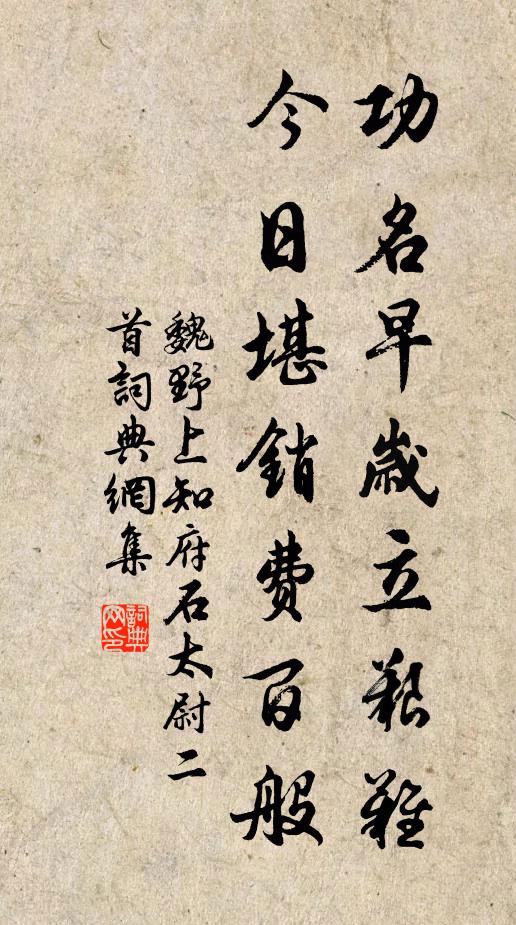 功名早歲立艱難
今日堪銷費百般
魏野上知府石太尉二
首詞典網集
詞典
网印